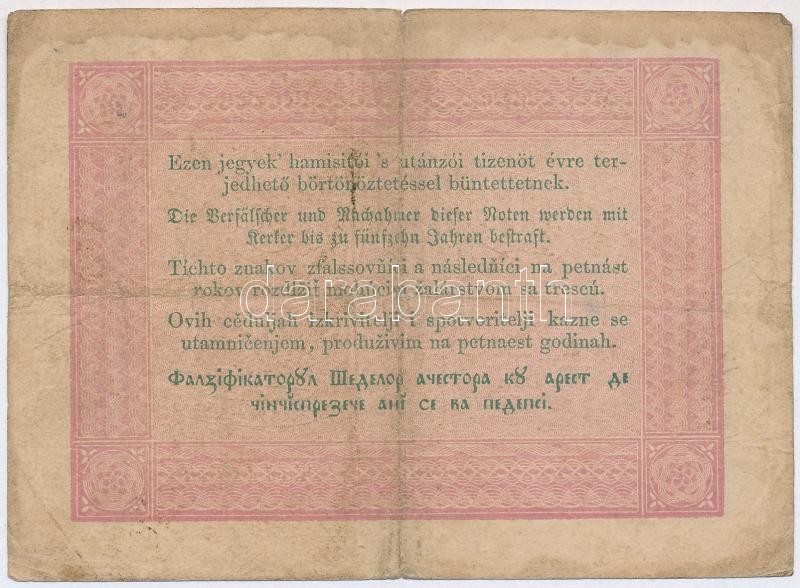 Ezen jegyek' hamisitói 's utánzói tizenöt évre ter-
jedhető börtönöztetéssel büntettetnek.
Die Verfälscher und Nachahmer dieser Noten werden mit
Kerker bis zu fünfzehn Jahren bestraft.
Tíchto znakov zfalssovňíci a následňíci na petnást
rokov rozdížiť žalárstvom sa trescú.
Ovih cěduljah izkrivitelji i spotvoritelji kazne se
utamničenjem, produživim na petnaest godinah.
Фалꙁіфікаторꙋл Шеделор ачестора кꙋ арест де
чінчіспреꙁече ані се ва педепсі.
darabanth